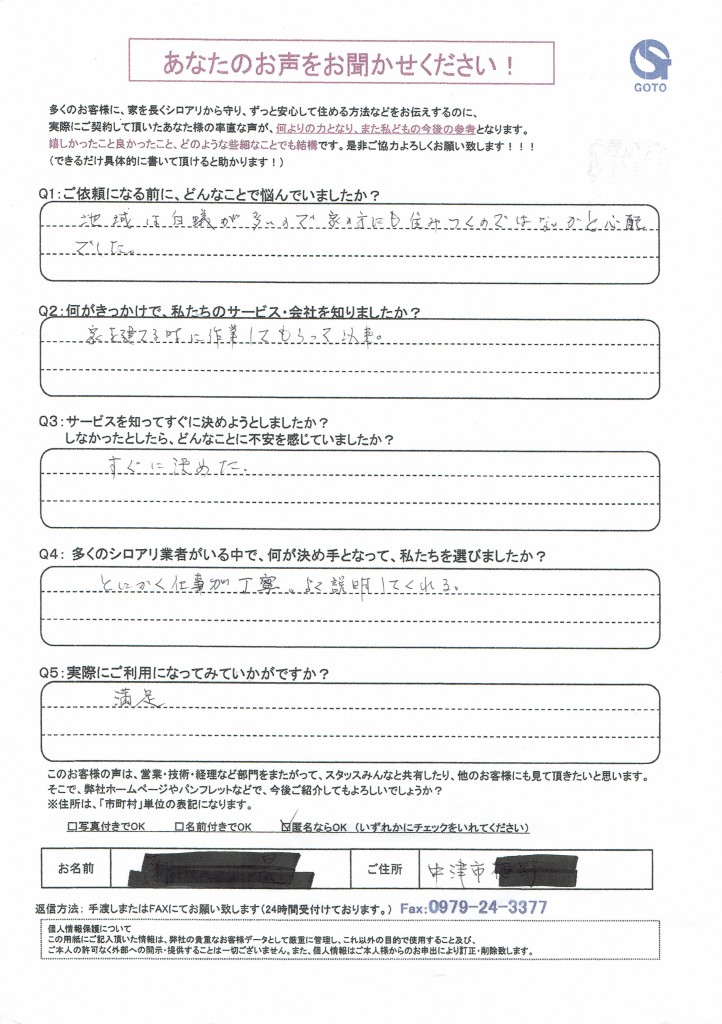 あなたのお声をお聞かせください！
GOTO
多くのお客様に、家を長くシロアリから守り、ずっと安心して住める方法などをお伝えするのに、
実際にご契約して頂いたあなた様の率直な声が、何よりの力となり、また私どもの今後の参考となります。
嬉しかったこと良かったこと、どのような些細なことでも結構です。是非ご協力よろしくお願い致します！！！
（できるだけ具体的に書いて頂けると助かります！）
Q1：ご依頼になる前に、どんなことで悩んでいましたか？
地域は白蟻が多いので家の方にも住みつくのではないかと心配
でした。
Q2：何がきっかけで、私たちのサービス・会社を知りましたか？
家を建てる時に作業してもらって以来。
Q3：サービスを知ってすぐに決めようとしましたか？
しなかったとしたら、どんなことに不安を感じていましたか？
すぐに決めた。
Q4： 多くのシロアリ業者がいる中で、何が決め手となって、私たちを選びましたか？
とにかく仕事が丁寧。よく説明してくれる。
Q5：実際にご利用になってみていかがですか？
満足
このお客様の声は、営業・技術・経理など部門をまたがって、スタッスみんなと共有したり、他のお客様にも見て頂きたいと思います。
そこで、弊社ホームページやパンフレットなどで、今後ご紹介してもよろしいでしょうか？
※住所は、「市町村」単位の表記になります。
□写真付きでOK □名前付きでOK ☑匿名ならOK （いずれかにチェックをいれてください）
お名前 ご住所 中津市
返信方法： 手渡しまたはFAXにてお願い致します（24時間受付けております。） Fax：0979-24-3377
個人情報保護について
この用紙にご記入頂いた情報は、弊社の貴重なお客様データとして厳重に管理し、これ以外の目的で使用すること及び、
ご本人の許可なく外部への開示・提供することは一切ございません。また、個人情報はご本人様からのお申出により訂正・削除致します。